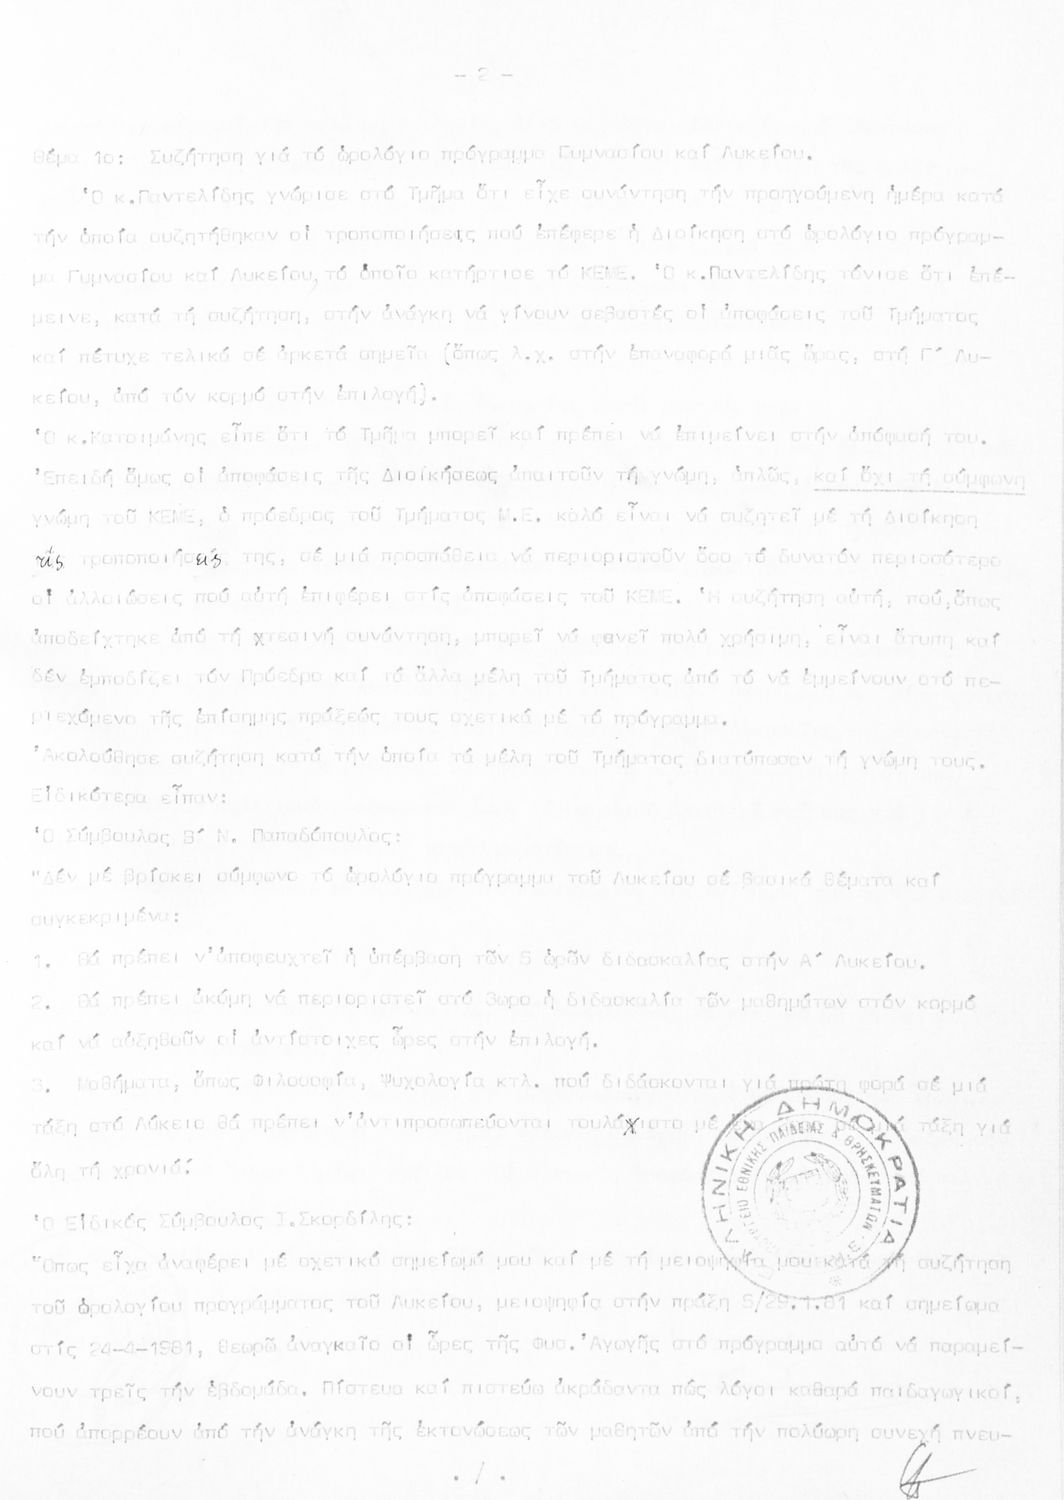 - 2 -
Θέμα 1ο: Συζήτηση γιά τό ὡρολόγιο πρόγραμμα Γυμνασίου καί Λυκείου.
Ὁ κ.Παντελίδης γνώρισε στό Τμῆμα ὅτι εἶχε συνάντηση τήν προηγούμενη ἡμέρα κατά
τήν ὁποία συζητήθηκαν οἱ τροποποιήσεις πού ἐπέφερε ἡ Διοίκηση στό ὡρολόγιο πρόγραμ-
μα Γυμνασίου καί Λυκείου, τό ὁποῖο κατήρτισε τό ΚΕΜΕ. Ὁ κ.Παντελίδης τόνισε ὅτι ἐπέ-
μεινε, κατά τή συζήτηση, στήν ἀνάγκη νά γίνουν σεβαστές οἱ ἀποφάσεις τοῦ Τμήματος
καί πέτυχε τελικά σέ ἀρκετά σημεῖα (ὅπως λ.χ. στήν ἐπαναφορά μιᾶς ὥρας, στή Γ΄ Λυ-
κείου, ἀπό τόν κορμό στήν ἐπιλογή).
Ὁ κ.Κατσιμάνης εἶπε ὅτι τό Τμῆμα μπορεῖ καί πρέπει νά ἐπιμείνει στήν ἀπόφασή του.
Ἐπειδή ὅμως οἱ ἀποφάσεις τῆς Διοικήσεως ἀπαιτοῦν τή γνώμη, ἁπλῶς, καί ὄχι τή σύμφωνη
γνώμη τοῦ ΚΕΜΕ, ὁ πρόεδρος τοῦ Τμήματος Μ.Ε. καλό εἶναι νά συζητεῖ μέ τή Διοίκηση
τίς τροποποιήσεις της, σέ μιά προσπάθεια νά περιοριστοῦν ὅσο τό δυνατόν περισσότερο
οἱ ἀλλοιώσεις πού αὐτή ἐπιφέρει στίς ἀποφάσεις τοῦ ΚΕΜΕ. Ἡ συζήτηση αὐτή, πού, ὅπως
ἀποδείχτηκε ἀπό τή χτεσινή συνάντηση, μπορεῖ νά φανεῖ πολύ χρήσιμη, εἶναι ἄτυπη καί
δέν ἐμποδίζει τόν Πρόεδρο καί τά ἄλλα μέλη τοῦ Τμήματος ἀπό τό νά ἐμμείνουν στό πε-
ριεχόμενο τῆς ἐπίσημης πράξεώς τους σχετικά μέ τό πρόγραμμα.
Ἀκολούθησε συζήτηση κατά τήν ὁποία τά μέλη τοῦ Τμήματος διατύπωσαν τή γνώμη τους.
Εἰδικότερα εἶπαν:
Ὁ Σύμβουλος Β΄ Ν. Παπαδόπουλος:
"Δέν μέ βρίσκει σύμφωνο τό ὡρολόγιο πρόγραμμα τοῦ Λυκείου σέ βασικά θέματα καί
συγκεκριμένα:
1. Θά πρέπει ν'ἀποφευχτεῖ ἡ ὑπέρβαση τῶν 5 ὡρῶν διδασκαλίας στήν Α΄ Λυκείου.
2. Θά πρέπει ἀκόμη νά περιοριστεῖ στό 3ωρο ἡ διδασκαλία τῶν μαθημάτων στόν κορμό
καί νά αὐξηθοῦν οἱ ἀντίστοιχες ὧρες στήν ἐπιλογή.
3. Μαθήματα, ὅπως Φιλοσοφία, Ψυχολογία κτλ. πού διδάσκονται γιά πρώτη φορά σέ μιά
τάξη στό Λύκειο θά πρέπει ν'ἀντιπροσωπεύονται τουλάχιστο μέ σέ μιά τάξη γιά
ὅλη τή χρονιά."
Ὁ Εἰδικός Σύμβουλος Ι.Σκορδίλης:
"Ὅπως εἶχα ἀναφέρει μέ σχετικό σημείωμά μου καί μέ τή μειοψηφία μου κατά τή συζήτηση
τοῦ ὡρολογίου προγράμματος τοῦ Λυκείου, μειοψηφία στήν πράξη 5/29.1.81 καί σημείωμα
στίς 24-4-1981, θεωρῶ ἀναγκαῖο οἱ ὧρες τῆς Φυσ. Ἀγωγῆς στό πρόγραμμα αὐτό νά παραμεί-
νουν τρεῖς τήν ἑβδομάδα. Πίστευα καί πιστεύω ἀκράδαντα πώς λόγοι καθαρά παιδαγωγικοί,
πού ἀπορρέουν ἀπό τήν ἀνάγκη τῆς ἐκτονώσεως τῶν μαθητῶν ἀπό τήν πολύωρη συνεχή πνευ-
./.
ΕΛΛΗΝΙΚΗ ΔΗΜΟΚΡΑΤΙΑ
ΥΠΟΥΡΓΕΙΟ ΕΘΝΙΚΗΣ ΠΑΙΔΕΙΑΣ & ΘΡΗΣΚΕΥΜΑΤΩΝ